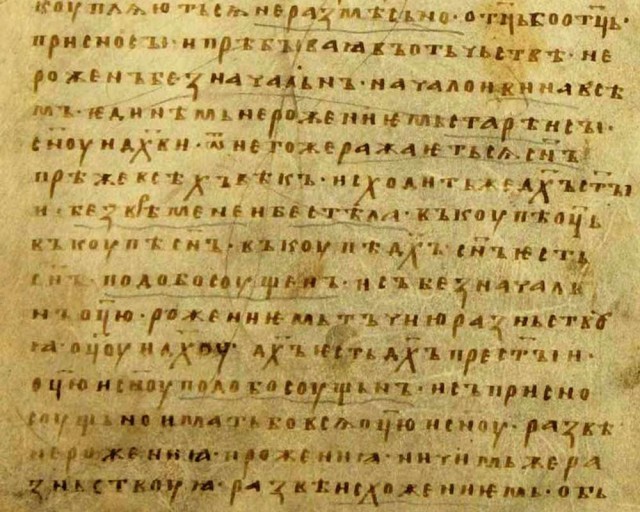 коупляютьсѧ неразмѣсьно · отц҃ьбо отц҃ь ·
присносы · и прѣбываꙗ въ отьчьствѣ · не
роженъ безначальнъ · начало и вина вьсѣ
мъ · ѥдинѣмь нерожениѥмь старѣи сы ·
сн҃оу и дх҃ви · ѿ негоже ражаѥтьсѧ сн҃ъ
прѣже вьсѣхъ вѣкъ · исходить же дх҃ъ ст҃ы
и · без врѣмене и бес тѣла · въкоупѣ оц҃ь
въкоупѣ сн҃ъ · въкоупѣ дх҃ъ · сн҃ъ ѥсть
сн҃ъ · подобосоущенъ · и съ безначаль
нъ оц҃ю · рожениѥмь тъчию разньств
ꙗ оц҃оу и дх҃оу · дх҃ъ ѥсть дх҃ъ прест҃ыи ·
оц҃ю и сн҃оу подобосоущьнъ · и съ присно
соущьно имать бо всѧ оц҃ю и сн҃оу · развѣ
нерожениꙗ · и рожениꙗ · ничимьже ра
зньствоуꙗ · развѣ исхожениѥмь · обь